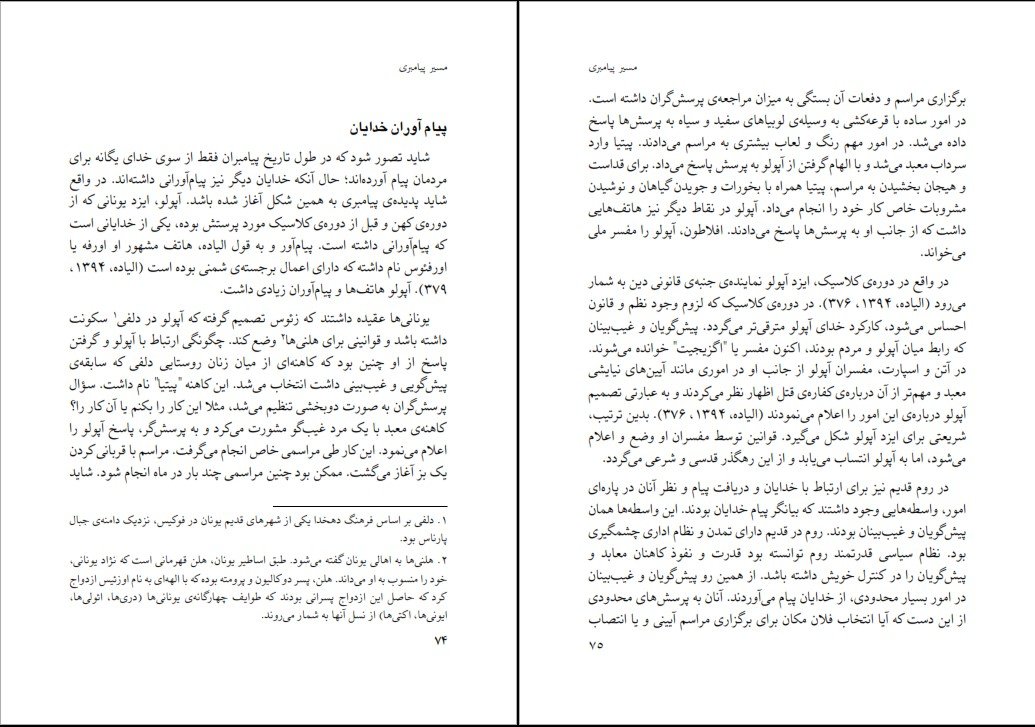 مسیر پیامبری
پیام آوران خدایان
شاید تصور شود که در طول تاریخ پیامبران فقط از سوی خدای یگانه برای
مردمان پیام آورده‌اند؛ حال آنکه خدایان دیگر نیز پیام‌آورانی داشته‌اند. در واقع
شاید پدیده‌ی پیامبری به همین شکل آغاز شده باشد. آپولو، ایزد یونانی که از
دوره‌ی کهن و قبل از دوره‌ی کلاسیک مورد پرستش بوده، یکی از خدایانی است
که پیام‌آورانی داشته است. پیام‌آور و به قول الیاده، هاتف مشهور او اورفه یا
اورفئوس نام داشته که دارای اعمال برجسته‌ی شمنی بوده است (الیاده، ۱۳۹۴،
۳۷۹). آپولو هاتف‌ها و پیام‌آوران زیادی داشت.
یونانی‌ها عقیده داشتند که زئوس تصمیم گرفته که آپولو در دلفی۱ سکونت
داشته باشد و قوانینی برای هلنی‌ها۲ وضع کند. چگونگی ارتباط با آپولو و گرفتن
پاسخ از او چنین بود که کاهنه‌ای از میان زنان روستایی دلفی که سابقه‌ی
پیش‌گویی و غیب‌بینی داشت انتخاب می‌شد. این کاهنه "پیتیا" نام داشت. سؤال
پرسش‌گران به صورت دوبخشی تنظیم می‌شد، مثلا این کار را بکنم یا آن کار را؟
کاهنه‌ی معبد با یک مرد غیب‌گو مشورت می‌کرد و به پرسش‌گر، پاسخ آپولو را
اعلام می‌نمود. این کار طی مراسمی خاص انجام می‌گرفت. مراسم با قربانی‌کردن
یک بز آغاز می‌گشت. ممکن بود چنین مراسمی چند بار در ماه انجام شود. شاید
۱. دلفی بر اساس فرهنگ دهخدا یکی از شهرهای قدیم یونان در فوکیس، نزدیک دامنه‌ی جبال
پارناس بود.
۲. هلنی‌ها به اهالی یونان گفته می‌شود. طبق اساطیر یونان، هلن قهرمانی است که نژاد یونانی،
خود را منسوب به او می‌داند. هلن، پسر دوکالیون و پرومته بوده که با الهه‌ای به نام اوزتیس ازدواج
کرد که حاصل این ازدواج پسرانی بودند که طوایف چهارگانه‌ی یونانی‌ها (دری‌ها، ائولی‌ها،
ایونی‌ها، اکتی‌ها) از نسل آنها به شمار می‌روند.
۷۴
مسیر پیامبری
برگزاری مراسم و دفعات آن بستگی به میزان مراجعه‌ی پرسش‌گران داشته است.
در امور ساده با قرعه‌کشی به وسیله‌ی لوبیاهای سفید و سیاه به پرسش‌ها پاسخ
داده می‌شد. در امور مهم رنگ و لعاب بیشتری به مراسم می‌دادند. پیتیا وارد
سرداب معبد می‌شد و با الهام‌گرفتن از آپولو به پرسش پاسخ می‌داد. برای قداست
و هیجان بخشیدن به مراسم، پیتیا همراه با بخورات و جویدن گیاهان و نوشیدن
مشروبات خاص کار خود را انجام می‌داد. آپولو در نقاط دیگر نیز هاتف‌هایی
داشت که از جانب او به پرسش‌ها پاسخ می‌دادند. افلاطون، آپولو را مفسر ملی
می‌خواند.
در واقع در دوره‌ی کلاسیک، ایزد آپولو نماینده‌ی جنبه‌ی قانونی دین به شمار
می‌رود (الیاده، ۱۳۹۴، ۳۷۶). در دوره‌ی کلاسیک که لزوم وجود نظم و قانون
احساس می‌شود، کارکرد خدای آپولو مترقی‌تر می‌گردد. پیش‌گویان و غیب‌بینان
که رابط میان آپولو و مردم بودند، اکنون مفسر یا "اگزیجیت" خوانده می‌شوند.
در آتن و اسپارت، مفسران آپولو از جانب او در اموری مانند آیین‌های نیایشی
معبد و مهم‌تر از آن درباره‌ی کفاره‌ی قتل اظهار نظر می‌کردند و به عبارتی تصمیم
آپولو درباره‌ی این امور را اعلام می‌نمودند (الیاده، ۱۳۹۴، ۳۷۶). بدین ترتیب،
شریعتی برای ایزد آپولو شکل می‌گیرد. قوانین توسط مفسران او وضع و اعلام
می‌شود، اما به آپولو انتساب می‌یابد و از این رهگذر قدسی و شرعی می‌گردد.
در روم قدیم نیز برای ارتباط با خدایان و دریافت پیام و نظر آنان در پاره‌ای
امور، واسطه‌هایی وجود داشتند که بیانگر پیام خدایان بودند. این واسطه‌ها همان
پیش‌گویان و غیب‌بینان بودند. روم در قدیم دارای تمدن و نظام اداری چشمگیری
بود. نظام سیاسی قدرتمند روم توانسته بود قدرت و نفوذ کاهنان معابد و
پیش‌گویان را در کنترل خویش داشته باشد. از همین رو پیش‌گویان و غیب‌بینان
در امور بسیار محدودی، از خدایان پیام می‌آوردند. آنان به پرسش‌های محدودی
از این دست که آیا انتخاب فلان مکان برای برگزاری مراسم آیینی و یا انتصاب
۷۵